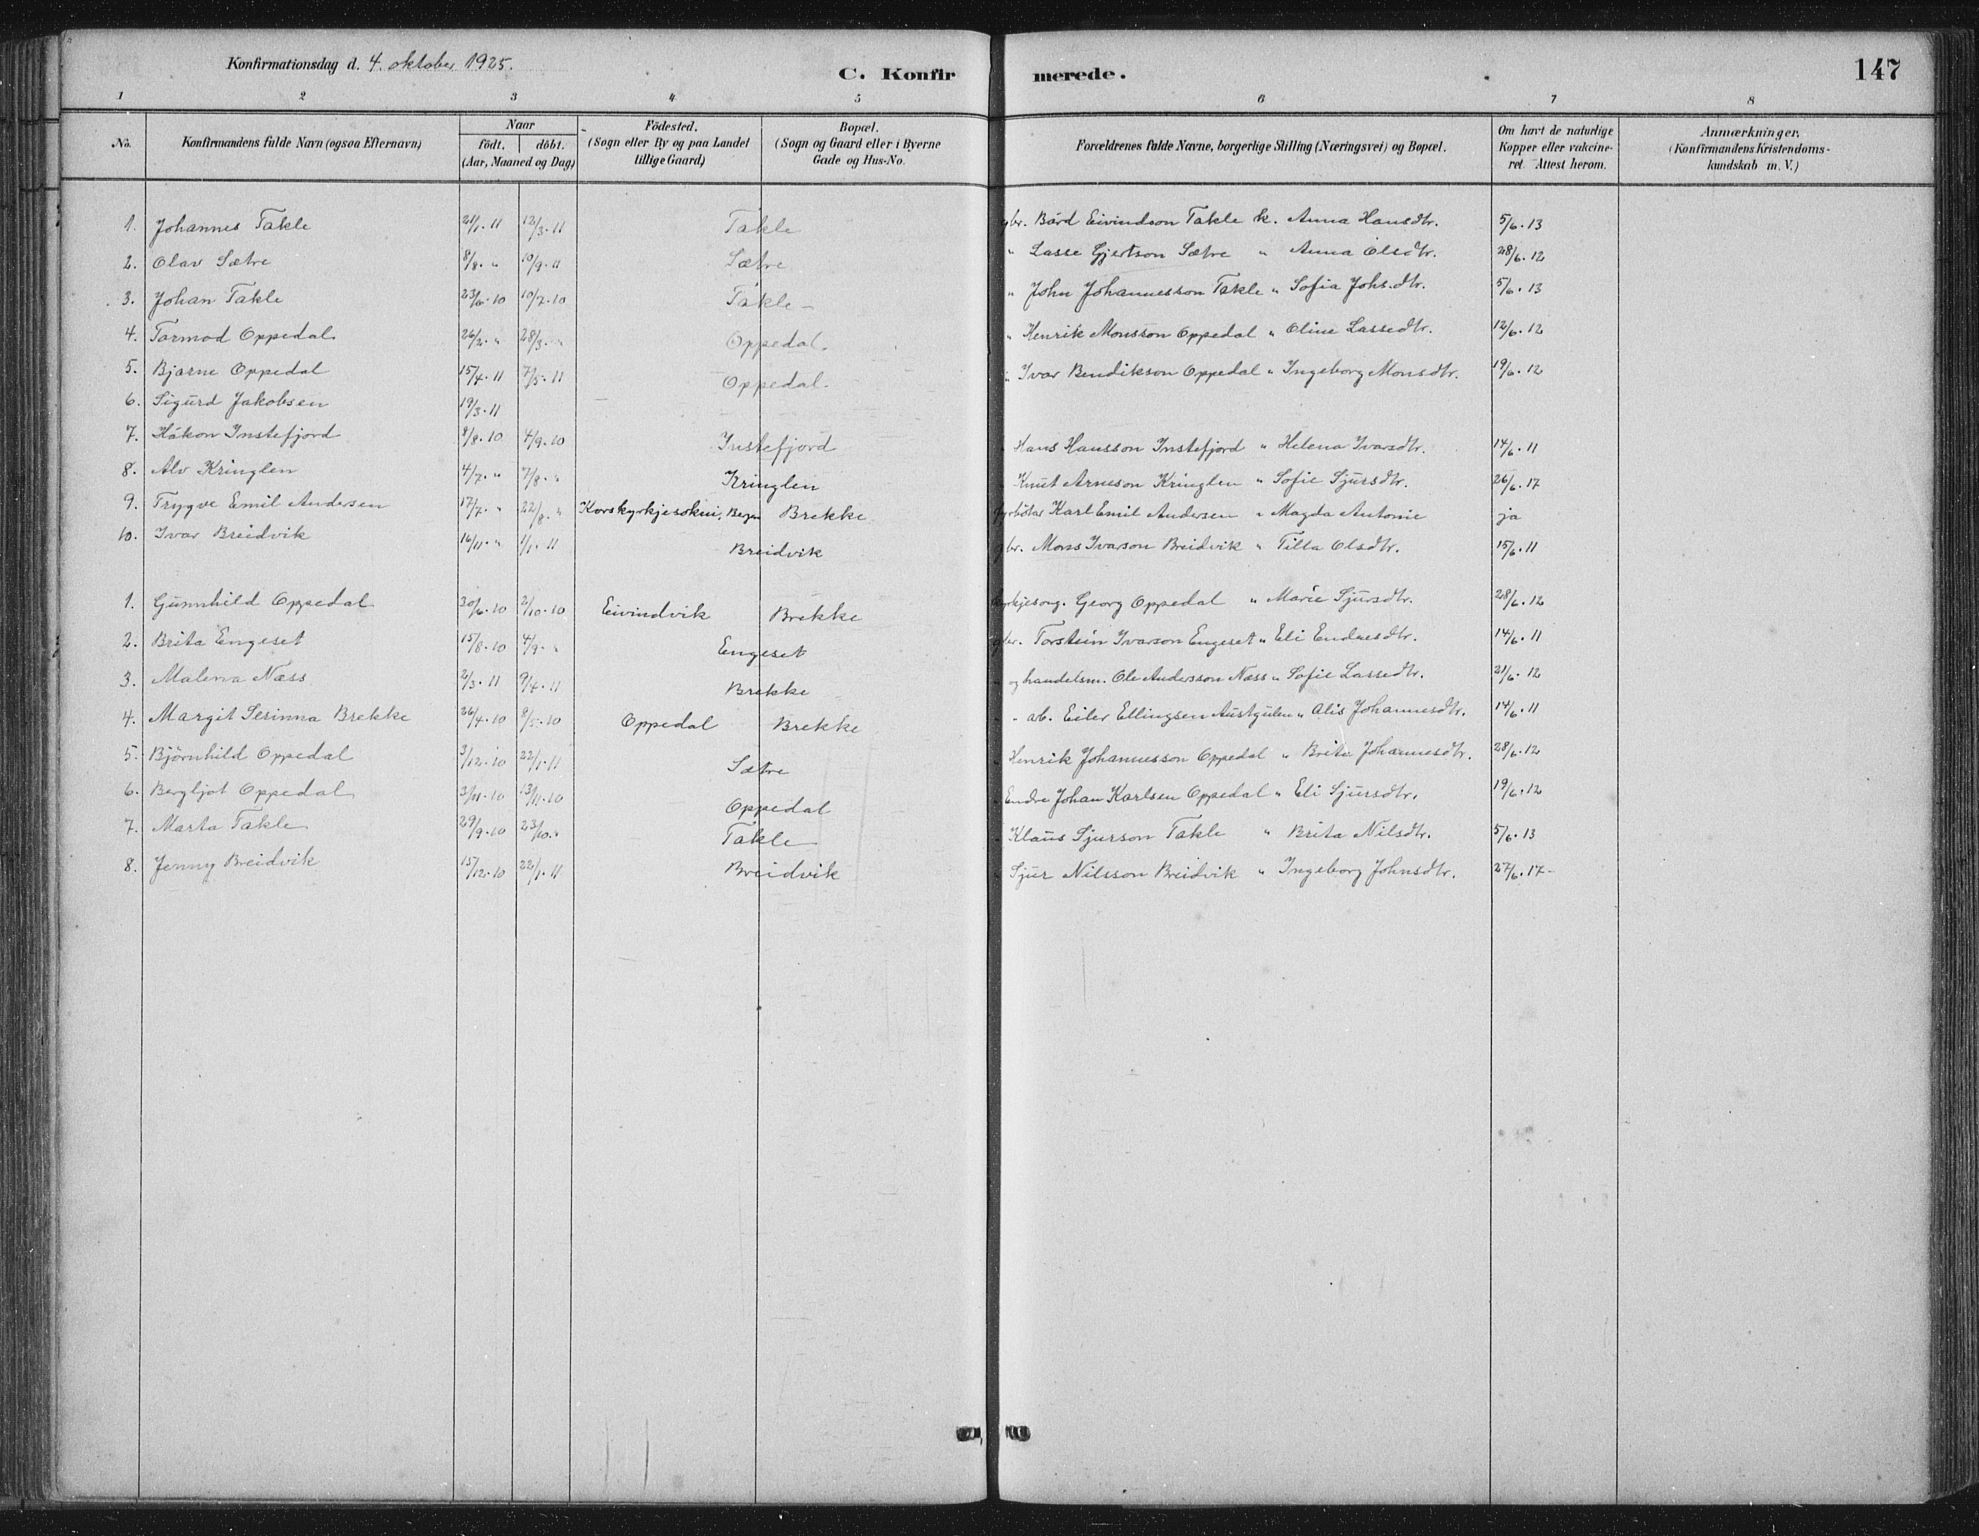 Konfirmationsdag d. 4. oktober 1925.
C. Konfir merede. 147
1 2 3 4 5 6 7 8
No. Konfirmandens fulde Navn (ogsaa Efternavn) Naar födt. döbt. (Aar, Maaned og Dag) Födested. (Sogn eller By og paa Landet tillige Gaard) Bopæl. (Sogn og Gaard eller i Byerne Gade og Hus-No. Forældrenes fulde Navne, borgerlige Stilling (Næringsvei) og Bopæl. Om havt de naturlige Kopper eller vakcineret. Attest herom. Anmærkninger. (Konfirmandens Kristendomskundskab m. V.)
1. Johannes Takle 21/1. 11 12/3. 11 Takle gbr. Bård Eivindson Takle k. Anna Hansdtr. 5/6. 13
2. Olav Sætre 8/8. " 10/9. 11 Sætre " Lasse Gjertson Sætre " Anna Olsdtr. 28/6. 12
3. Johan Takle 23/6. 10 10/7. 10 Takle " John Johannesson Takle " Sofia Johs.dtr. 5/6. 13
4. Tormod Oppedal 26/2. " 28/3. " Oppedal. " Henrik Monsson Oppedal " Oline Lassedtr. 12/6. 12
5. Bjarne Oppedal 15/4. 11 7/5. 11 Oppedal. " Ivar Bendikson Oppedal " Ingeborg Monsdtr. 19/6. 12
6. Sigurd Jakobsen 19/3. 11
7. Håkon Instefjord 8/8. 10 4/9. 10 Instefjord " Hans Hansson Instefjord " Helena Ivarsdtr. 14/6. 11
8. Alv Kringlen 4/7. " 7/8. " Kringlen " Knut Arneson Kringlen " Sofie Sjursdtr. 26/6. 17
9. Trygve Emil Andersen 17/7. " 22/8. " Korskyrkjesokni, Bergen Brekke fyrbøtar Karl Emil Andersen " Magda Antonie ja
10. Ivar Breidvik 16/11. " 1/1. 11 Breidvik gbr. Mons Ivarson Breidvik " Tilla Olsdtr. 15/6. 11
1. Gunnhild Oppedal 30/6. 10 2/10. 10 Eivindvik Brekke kyrkjesong. Georg Oppedal " Marie Sjursdtr. 28/6. 12
2. Brita Engeset 15/8. 10 4/9. " Engeset gbr. Torstein Ivarson Engeset " Eli Endresdtr. 14/6. 11
3. Malena Næss 2/3. 11 9/4. 11 Brekke " og handelsm. Ole Andersson Næss " Sofie Lassedtr. 21/6. 12
4. Margit Serinna Brekke 26/4. 10 8/5. 10 Oppedal Brekke " - arb. Eiler Ellingsen Austgulen " Alis Johannesdtr. 14/6. 11
5. Bjørnhild Oppedal 3/12. 10 22/1. 11 Sætre " Henrik Johannesson Oppedal " Brita Johannesdtr. 28/6. 12
6. Bergljot Oppedal 3/11. 10 13/11. 10 Oppedal " Endre Johan Karlsen Oppedal " Eli Sjursdtr. 19/6. 12
7. Marta Takle 29/9. 10 23/10. " Takle " Klaus Sjurson Takle " Brita Nilsdtr. 5/6. 13
8. Jenny Breidvik 15/12. 10 22/1. 11 Breidvik " Sjur Nilsson Breidvik " Ingeborg Johnsdtr. 27/6. 17-